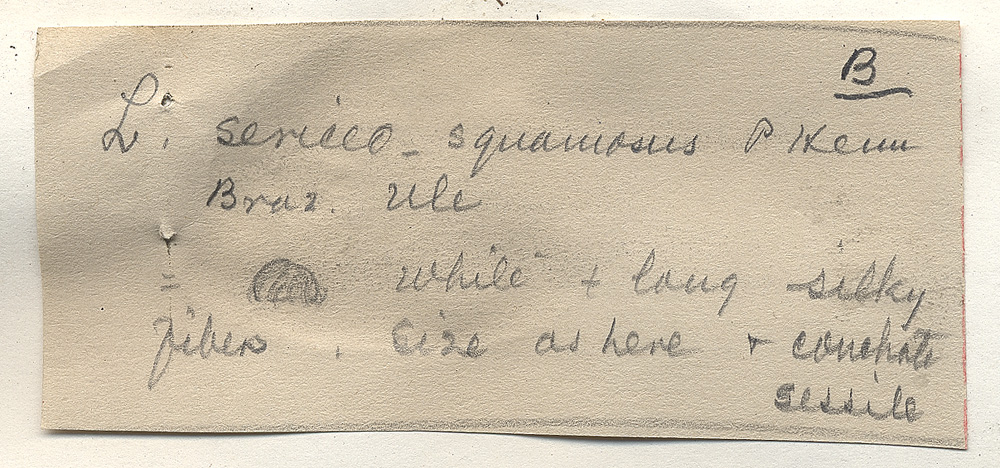 B
L. sericeo-squamosus P Henn
Braz. Ule
= white + long silky
fibers. Size as here + conchate
sessile